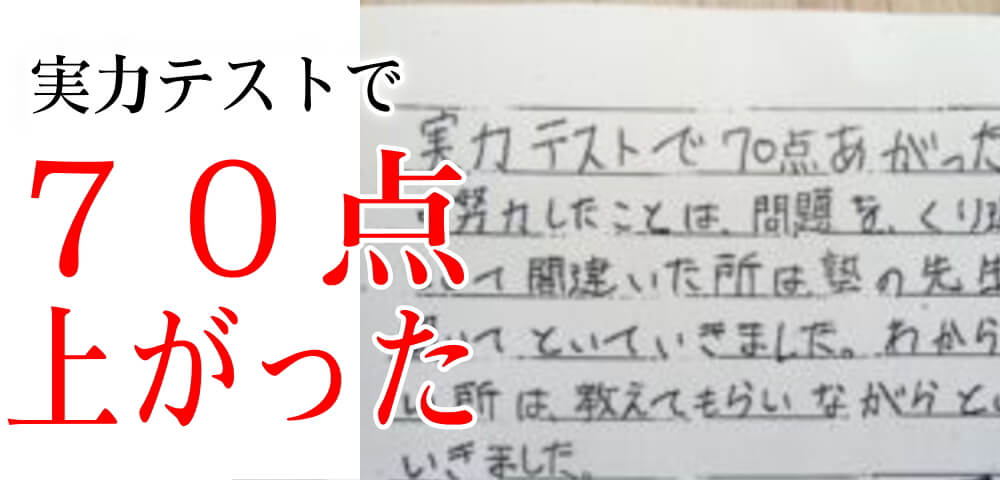 実力テストで
７０点
上がった
実力テストで70点あがった
努力したことは、問題を、くり
て間違いた所は塾の先生
いてといていきました。わから
い所は、教えてもらいながらと
いきました。